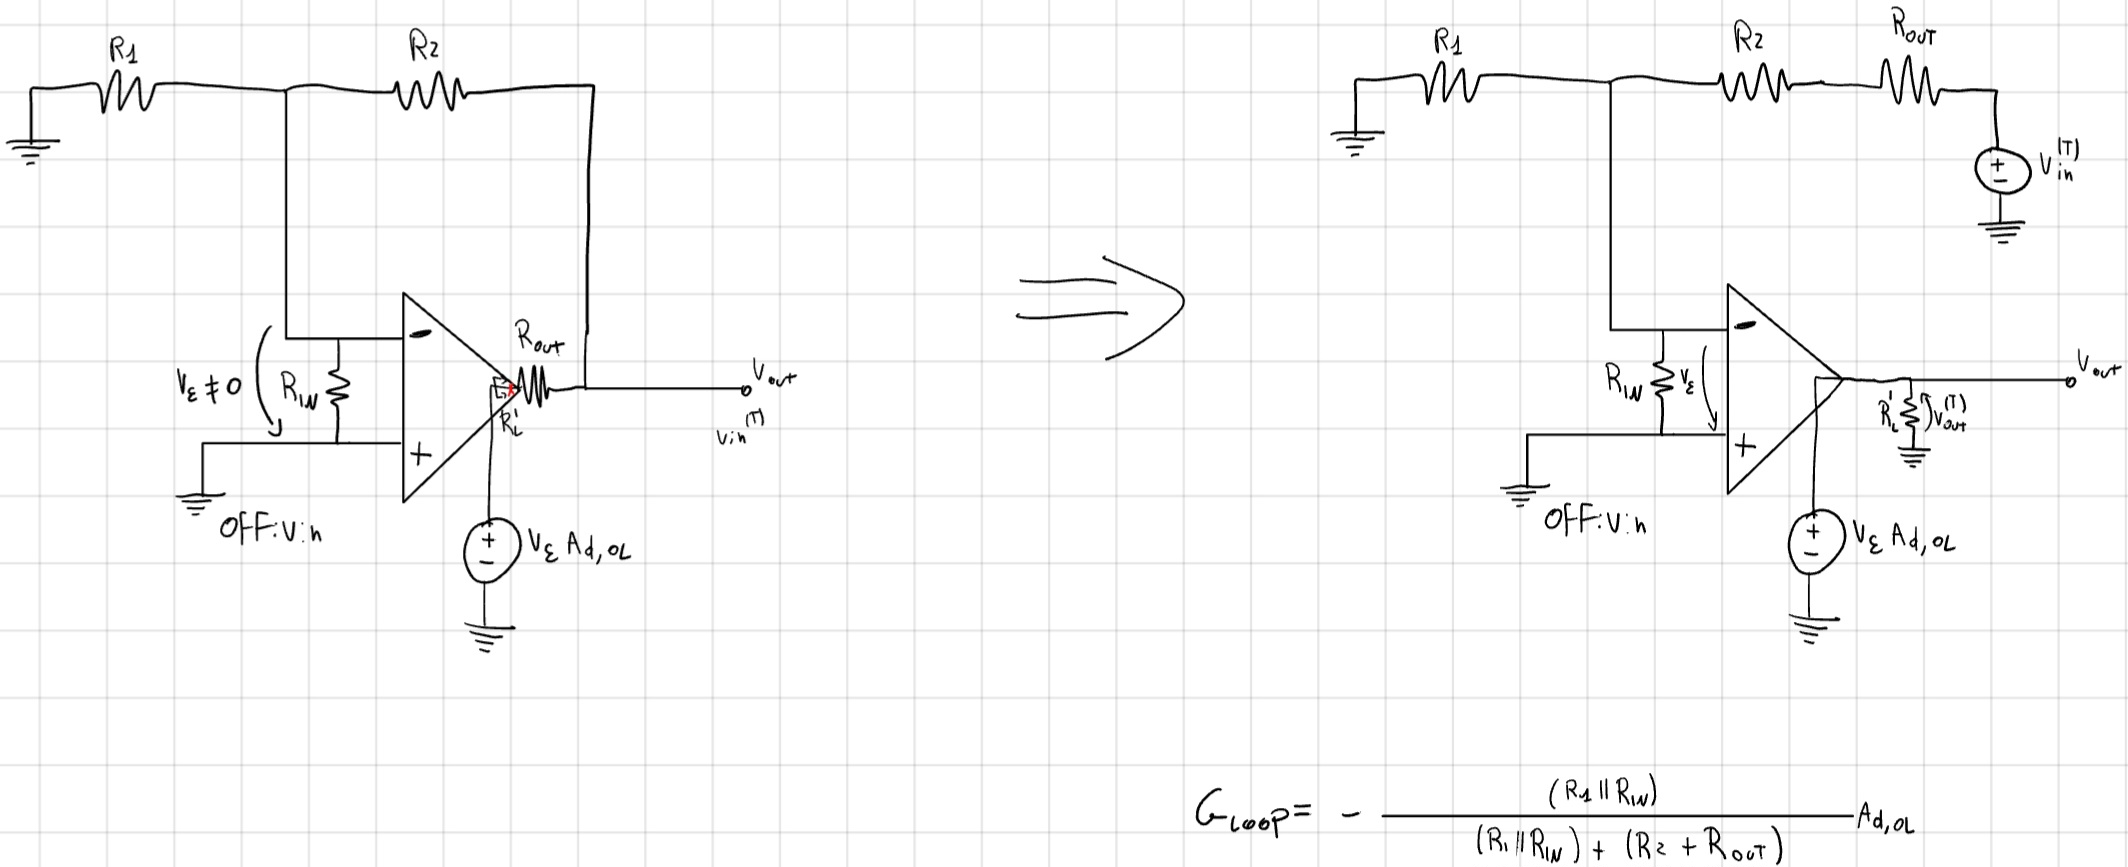 R1
R2
Rout
Vε ≠ 0
RIN
-
+
R'L
Vout
Vin(T)
OFF:Vin
+
-
Vε Ad,OL
R1
R2
ROUT
+
-
Vin(T)
RIN
Vε
-
+
R'L
Vout(T)
Vout
OFF:Vin
+
-
Vε Ad,OL
GLOOP = - (R1 || RIN) / ((R1 || RIN) + (R2 + ROUT)) Ad,OL